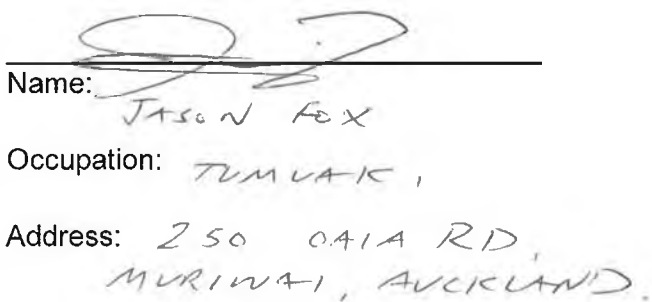 Name:
JASON FOX
Occupation: TUMUAK,
Address: 250 OAIA RD,
MURIWAI, AUCKLAND.